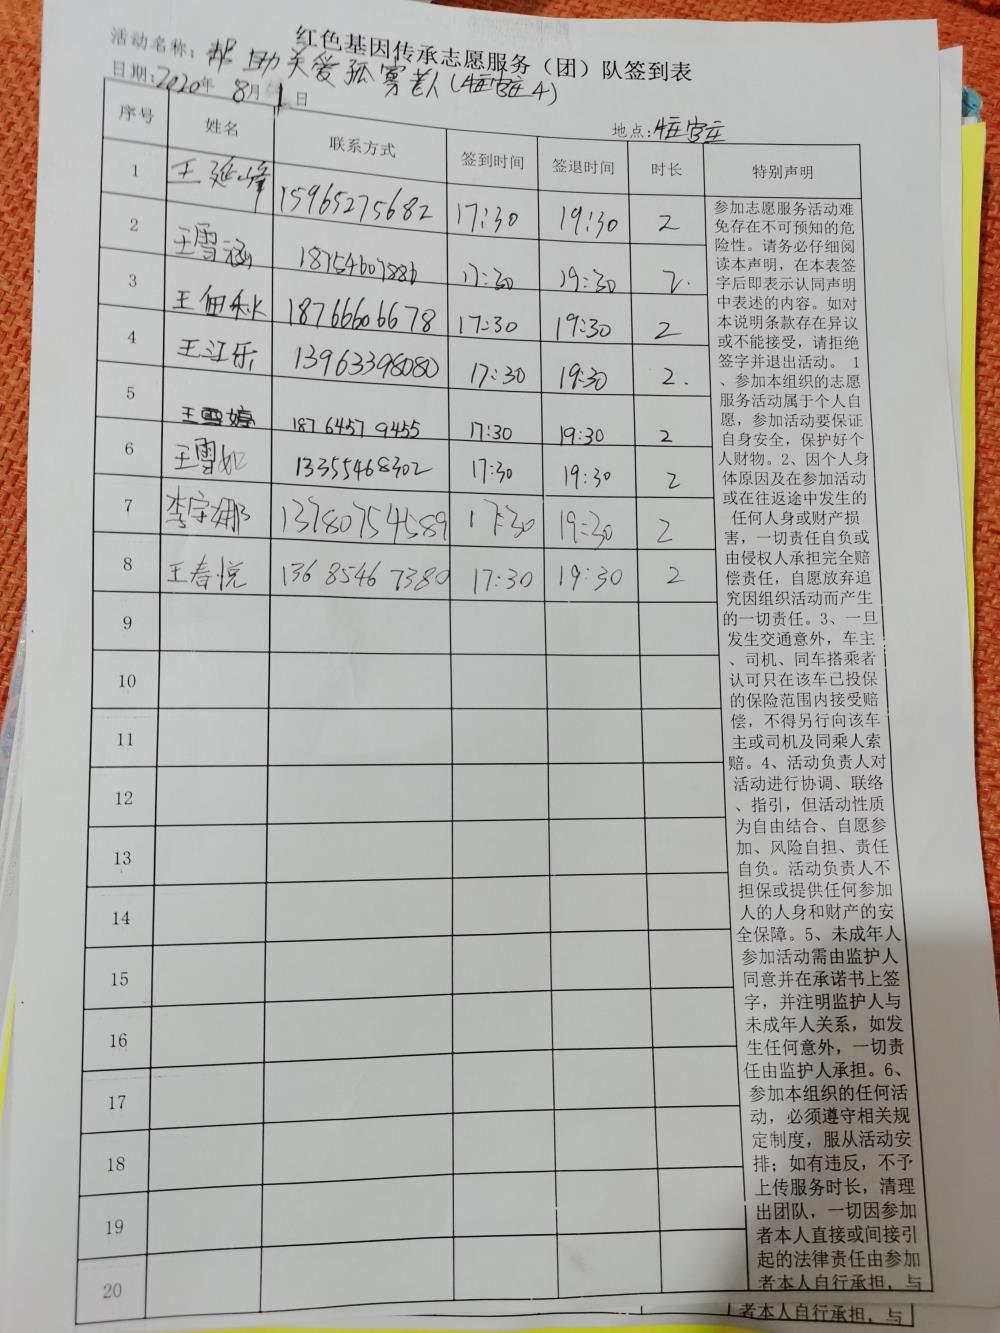 红色基因传承志愿服务（团）队签到表
活动名称：帮助关爱孤寡老人
日期：2020年 8月 1日
地点：
序号 姓名 联系方式 签到时间 签退时间 时长 特别声明
1 王延峰 15965275682 17:30 19:30 2
2 王雪涵 18754607886 17:30 19:30 2.
3 王佃秋 18766606678 17:30 19:30 2
4 王江乐 13963398080 17:30 19:30 2.
5 王雪婷 187 6457 9455 17:30 19:30 2
6 王雪如 13355468302 17:30 19:30 2
7 李宇娜 13780754589 17:30 19:30 2
8 王春悦 136 8546 7380 17:30 19:30 2
9
10
11
12
13
14
15
16
17
18
19
20
参加志愿服务活动难
免存在不可预知的危
险性。请务必仔细阅
读本声明，在本表签
字后即表示认同声明
中表述的内容。如对
本说明条款存在异议
或不能接受，请拒绝
签字并退出活动。 1
、参加本组织的志愿
服务活动属于个人自
愿，参加活动要保证
自身安全，保护好个
人财物。2、因个人身
体原因及在参加活动
或在往返途中发生的
任何人身或财产损
害，一切责任自负或
由侵权人承担完全赔
偿责任，自愿放弃追
究因组织活动而产生
的一切责任。3、一旦
发生交通意外，车主
、司机、同车搭乘者
认可只在该车已投保
的保险范围内接受赔
偿，不得另行向该车
主或司机及同乘人索
赔。4、活动负责人对
活动进行协调、联络
、指引，但活动性质
为自由结合、自愿参
加、风险自担、责任
自负。活动负责人不
担保或提供任何参加
人的人身和财产的安
全保障。5、未成年人
参加活动需由监护人
同意并在承诺书上签
字，并注明监护人与
未成年人关系，如发
生任何意外，一切责
任由监护人承担。6、
参加本组织的任何活
动，必须遵守相关规
定制度，服从活动安
排；如有违反，不予
上传服务时长，清理
出团队，一切因参加
者本人直接或间接引
起的法律责任由参加
者本人自行承担，与
者本人自行承担，与